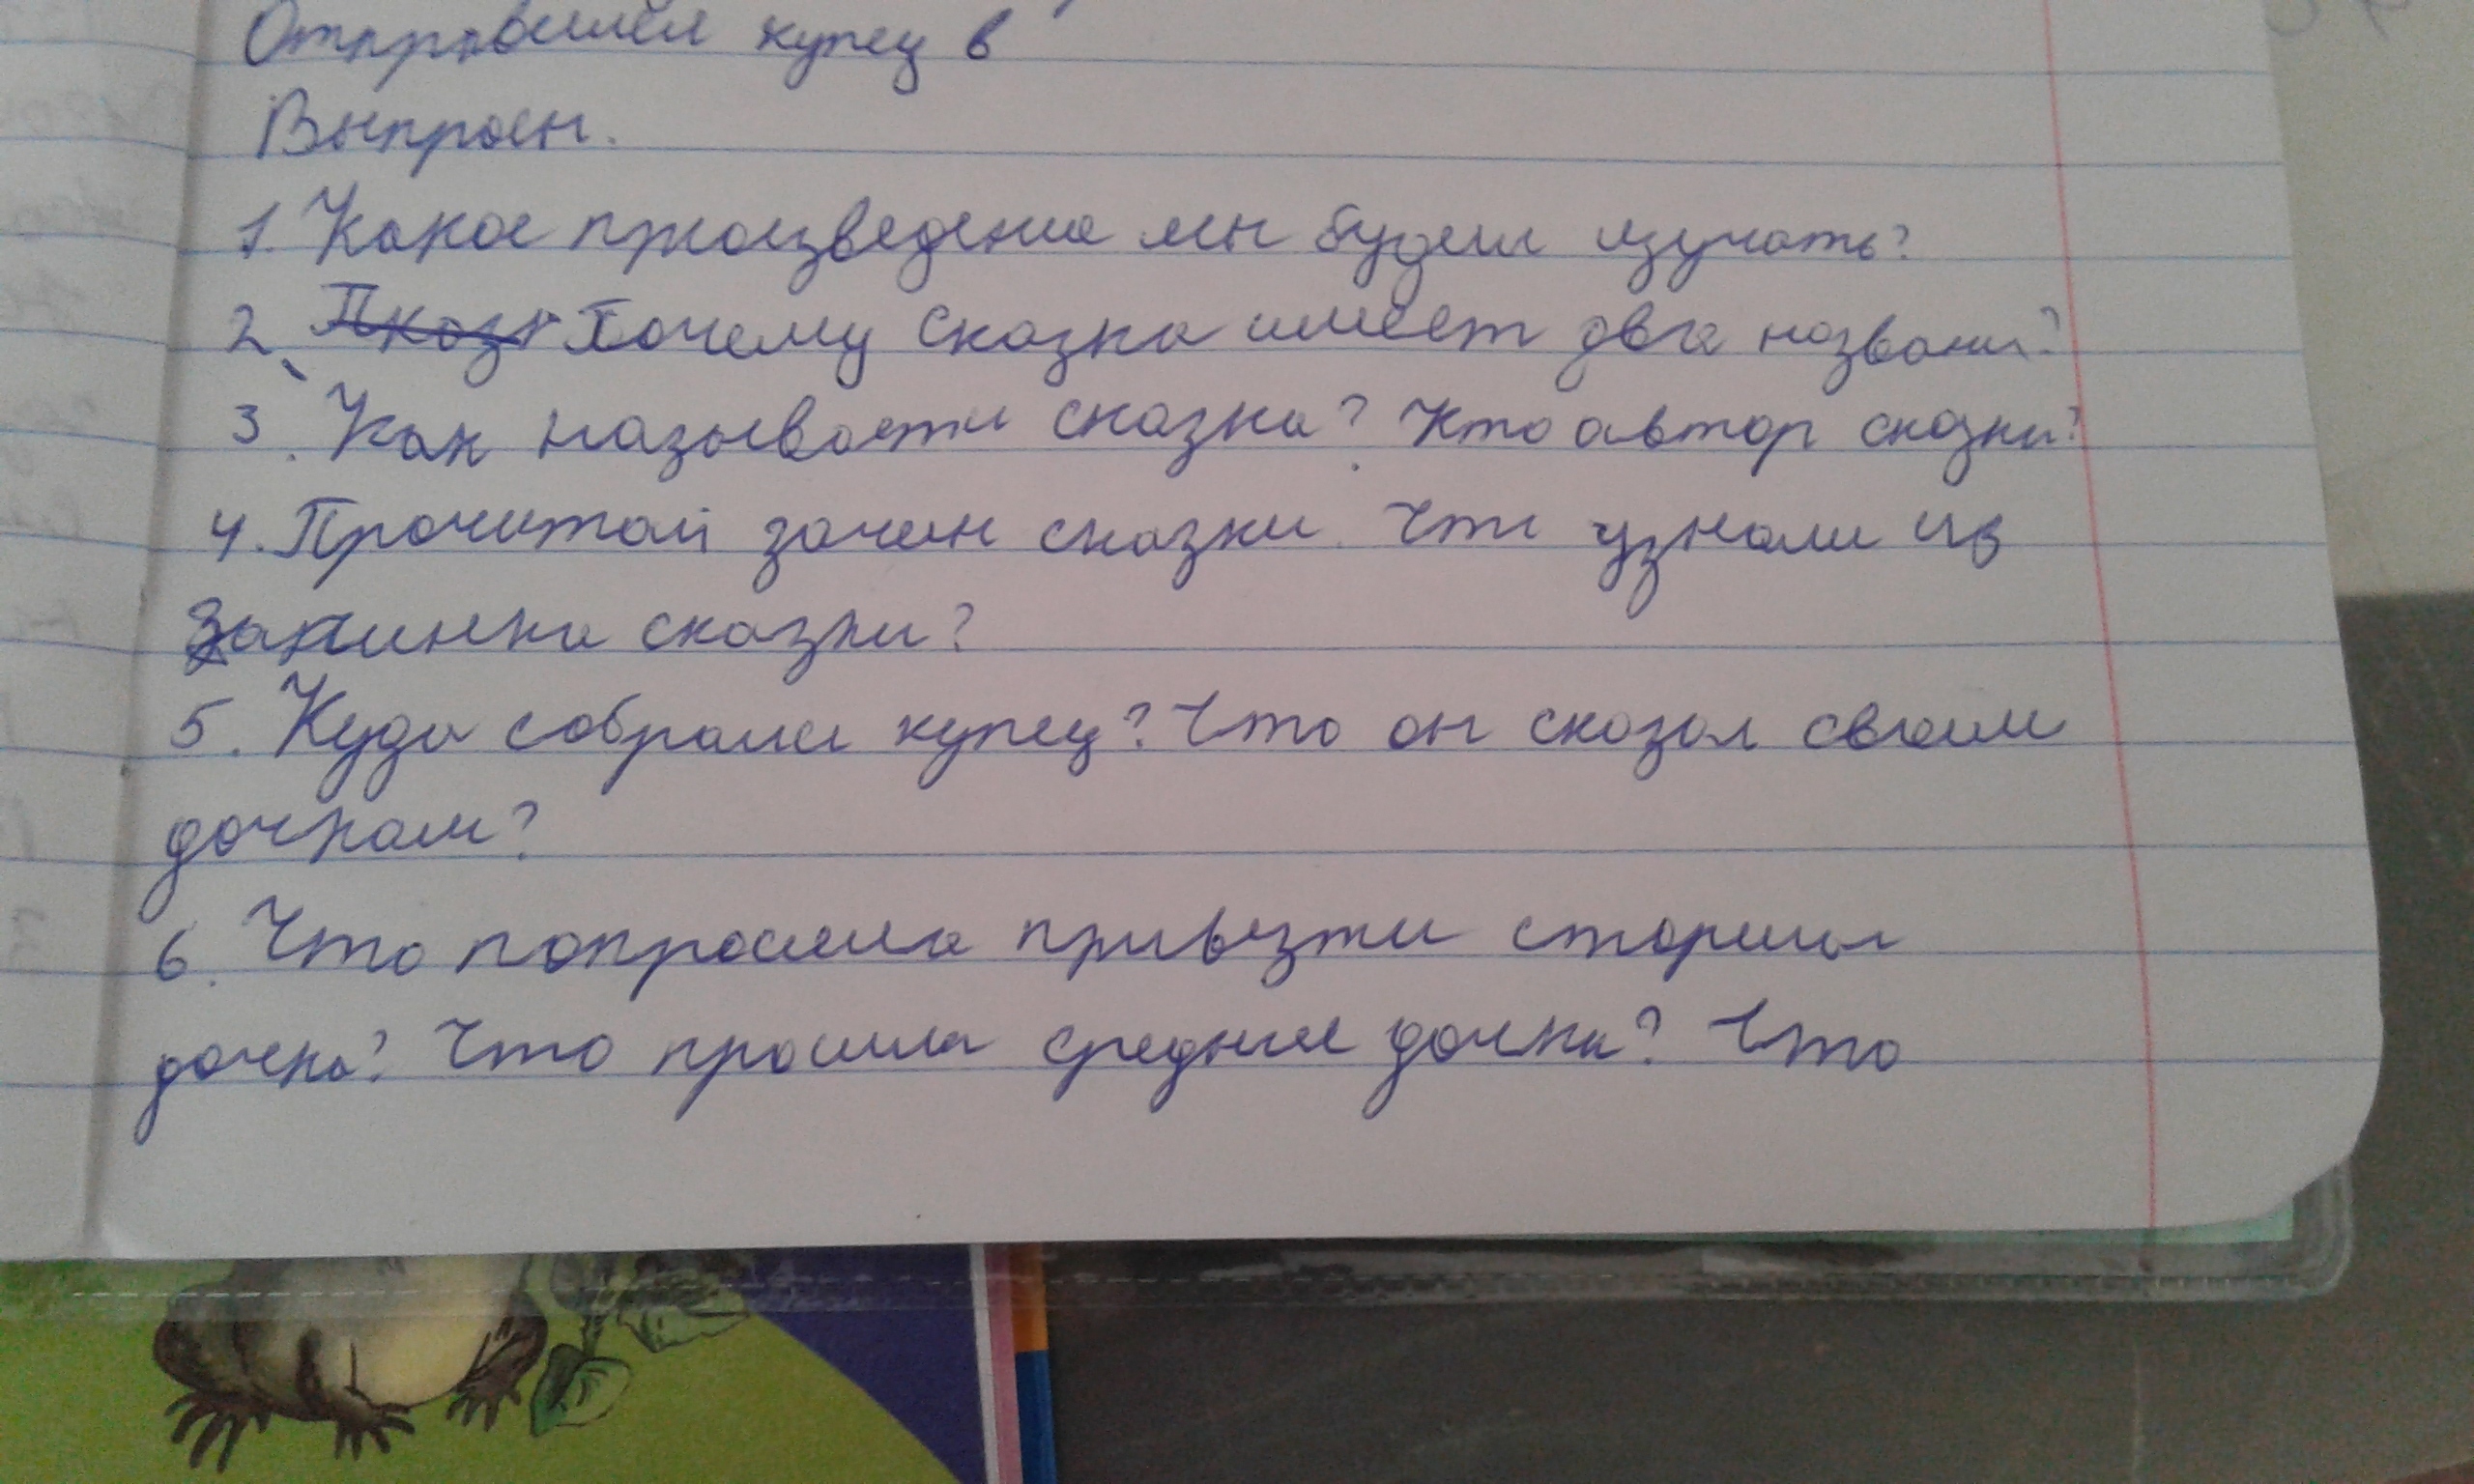 Отправился купец в
Выпроси.
1. Какое произведение мы будем изучать?
2. Почему сказка имеет два названи?
3. Как называети сказка? Кто автор сказки?
4. Прочитай зачин сказки. Что узнали из
зачинна сказки?
5. Куда собрался купец? Что он сказал своим
дочкам?
6. Что попросила привезти старшая
дочка? Что просила средняя дочка? Что